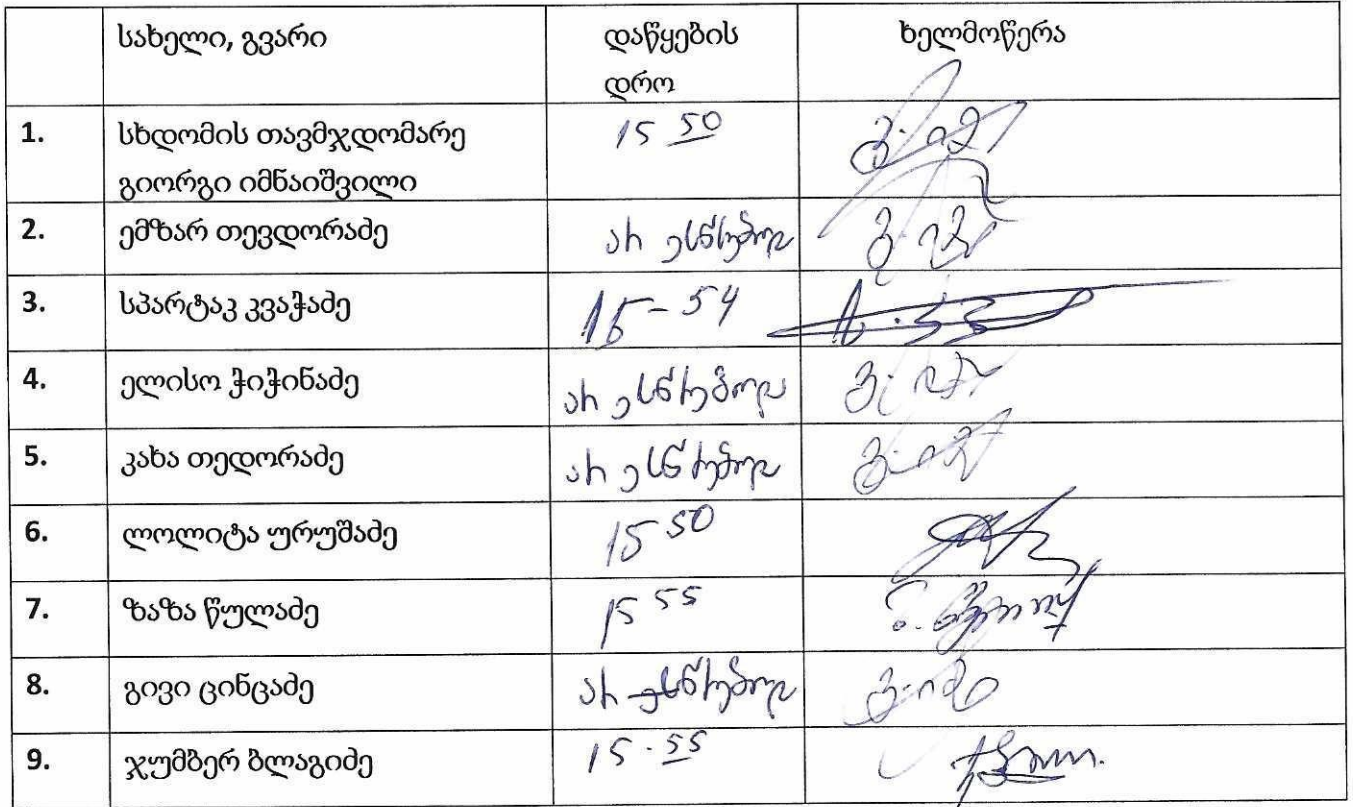 სახელი, გვარი დაწყების დრო ხელმოწერა
1. სხდომის თავმჯდომარე გიორგი იმნაიშვილი 15 50
2. ემზარ თევდორაძე არ ესწრებოდა
3. სპარტაკ კვაჭაძე 15-54
4. ელისო ჭიჭინაძე არ ესწრებოდა
5. კახა თედორაძე არ ესწრებოდა
6. ლოლიტა ურუშაძე 15 50
7. ზაზა წულაძე 15 55
8. გივი ცინცაძე არ ესწრებოდა
9. ჯუმბერ ბლაგიძე 15.55